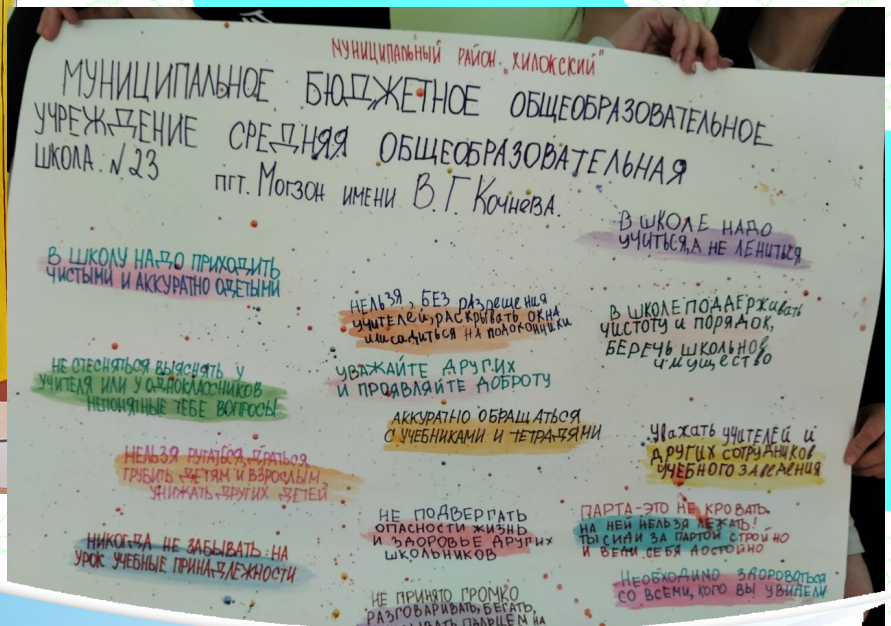 МУНИЦИПАЛЬНЫЙ РАЙОН „ХИЛОКСКИЙ"
МУНИЦИПАЛЬНОЕ БЮДЖЕТНОЕ ОБЩЕОБРАЗОВАТЕЛЬНОЕ
УЧРЕЖДЕНИЕ СРЕДНЯЯ ОБЩЕОБРАЗОВАТЕЛЬНАЯ
ШКОЛА №23
пгт. Могзон имени В.Г. Кочнева.
В ШКОЛЕ НАДО
УЧИТЬСЯ, А НЕ ЛЕНИТЬСЯ
В ШКОЛУ НАДО ПРИХОДИТЬ
ЧИСТЫМИ И АККУРАТНО ОДЕТЫМИ
НЕЛЬЗЯ, БЕЗ разрешения
учителей, раскрывать окна
или садиться на подоконники
В ШКОЛЕ ПОДДЕРЖивать
чистоту и порядок,
БЕРЕЧЬ ШКОЛЬНОЕ
имущество
НЕ СТЕСНЯТЬСЯ ВЫЯСНЯТЬ У
УЧИТЕЛЯ ИЛИ У ОДНОКЛАССНИКОВ
НЕПОНЯТНЫЕ ТЕБЕ ВОПРОСЫ
УВАЖАЙТЕ ДРУГИХ
И ПРОЯВЛЯЙТЕ ДОБРОТУ
АККУРАТНО ОБРАЩАТЬСЯ
С УЧЕБНИКАМИ И ТЕТРАДЯМИ
Уважать учителей и
других сотрудников
учебного заведения
НЕЛЬЗЯ РУГАТЬСЯ, ДРАТЬСЯ,
ГРУБИТЬ ДЕТЯМ И ВЗРОСЛЫМ,
УНИЖАТЬ ДРУГИХ ДЕТЕЙ
НЕ ПОДВЕРГАТЬ
ОПАСНОСТИ ЖИЗНЬ
И ЗДОРОВЬЕ ДРУГИХ
ШКОЛЬНИКОВ
ПАРТА-ЭТО НЕ КРОВАТЬ.
НА НЕЙ НЕЛЬЗЯ ЛЕЖАТЬ!
ТЫ СИДИ ЗА ПАРТОЙ СТРОЙНО
И ВЕДИ СЕБЯ ДОСТОЙНО
НИКОГДА НЕ ЗАБЫВАТЬ НА
УРОК УЧЕБНЫЕ ПРИНАДЛЕЖНОСТИ
НЕОБХОДИМО ЗДОРОВАТЬСЯ
СО ВСЕМИ, КОГО ВЫ УВИДЕЛИ
НЕ ПРИНЯТО ГРОМКО
РАЗГОВАРИВАТЬ, БЕГАТЬ,
ПАЛЬЦЕМ НА